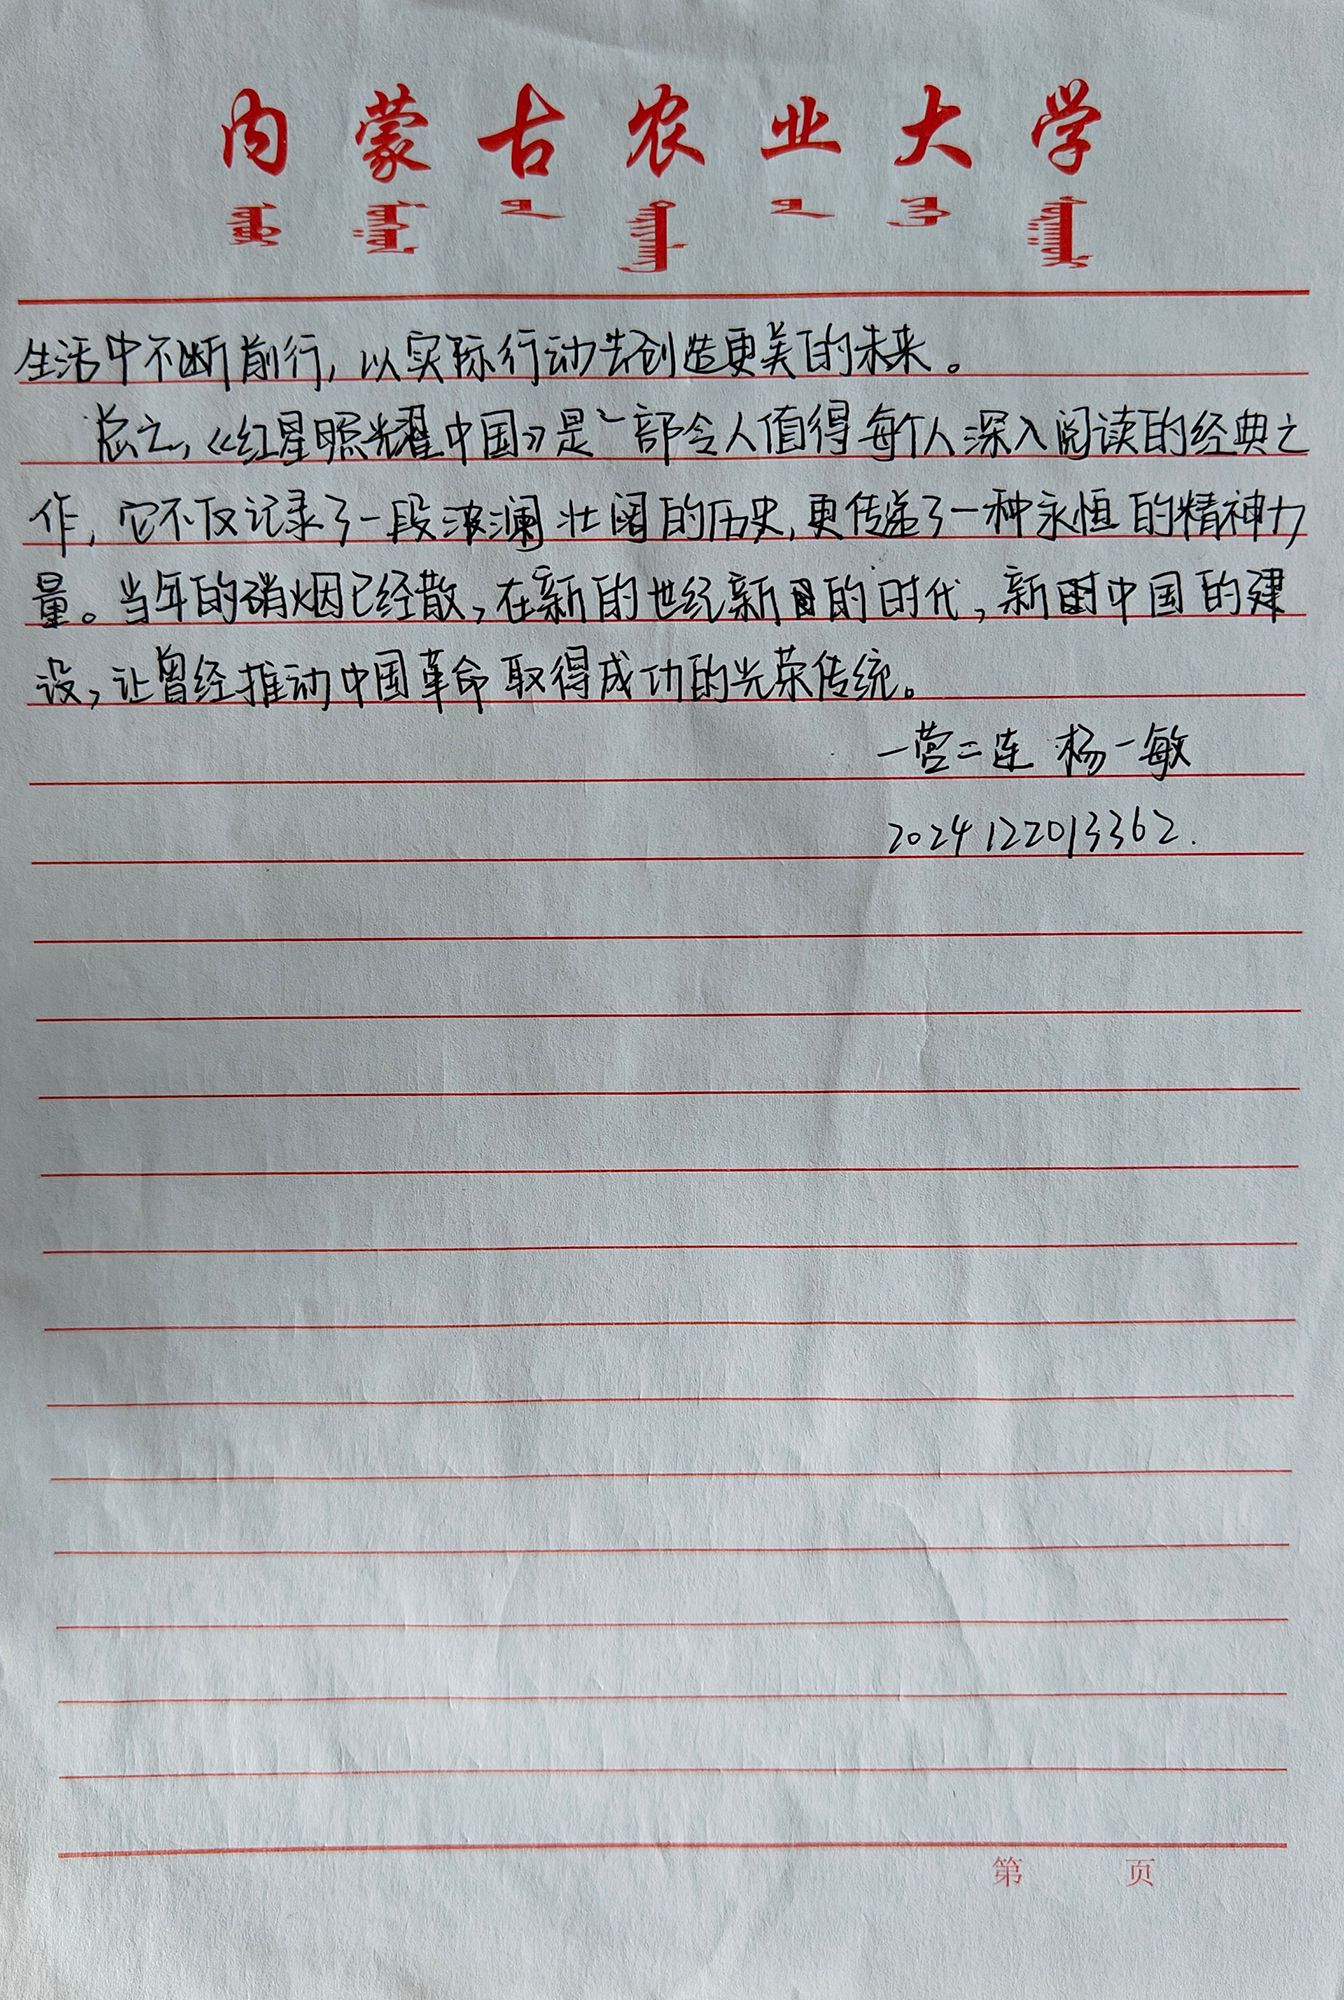 内蒙古农业大学
生活中不断前行，以实际行动去创造更美的未来。
总之，《红星照耀中国》是一部令人值得每个人深入阅读的经典之
作，它不仅记录了一段波澜壮阔的历史，更传递了一种永恒的精神力
量。当年的硝烟已经散，在新的世纪新的时代，新中国的建
设，让曾经推动中国革命取得成功的光荣传统。
一营二连 杨一敏
2024122013362.
第 页